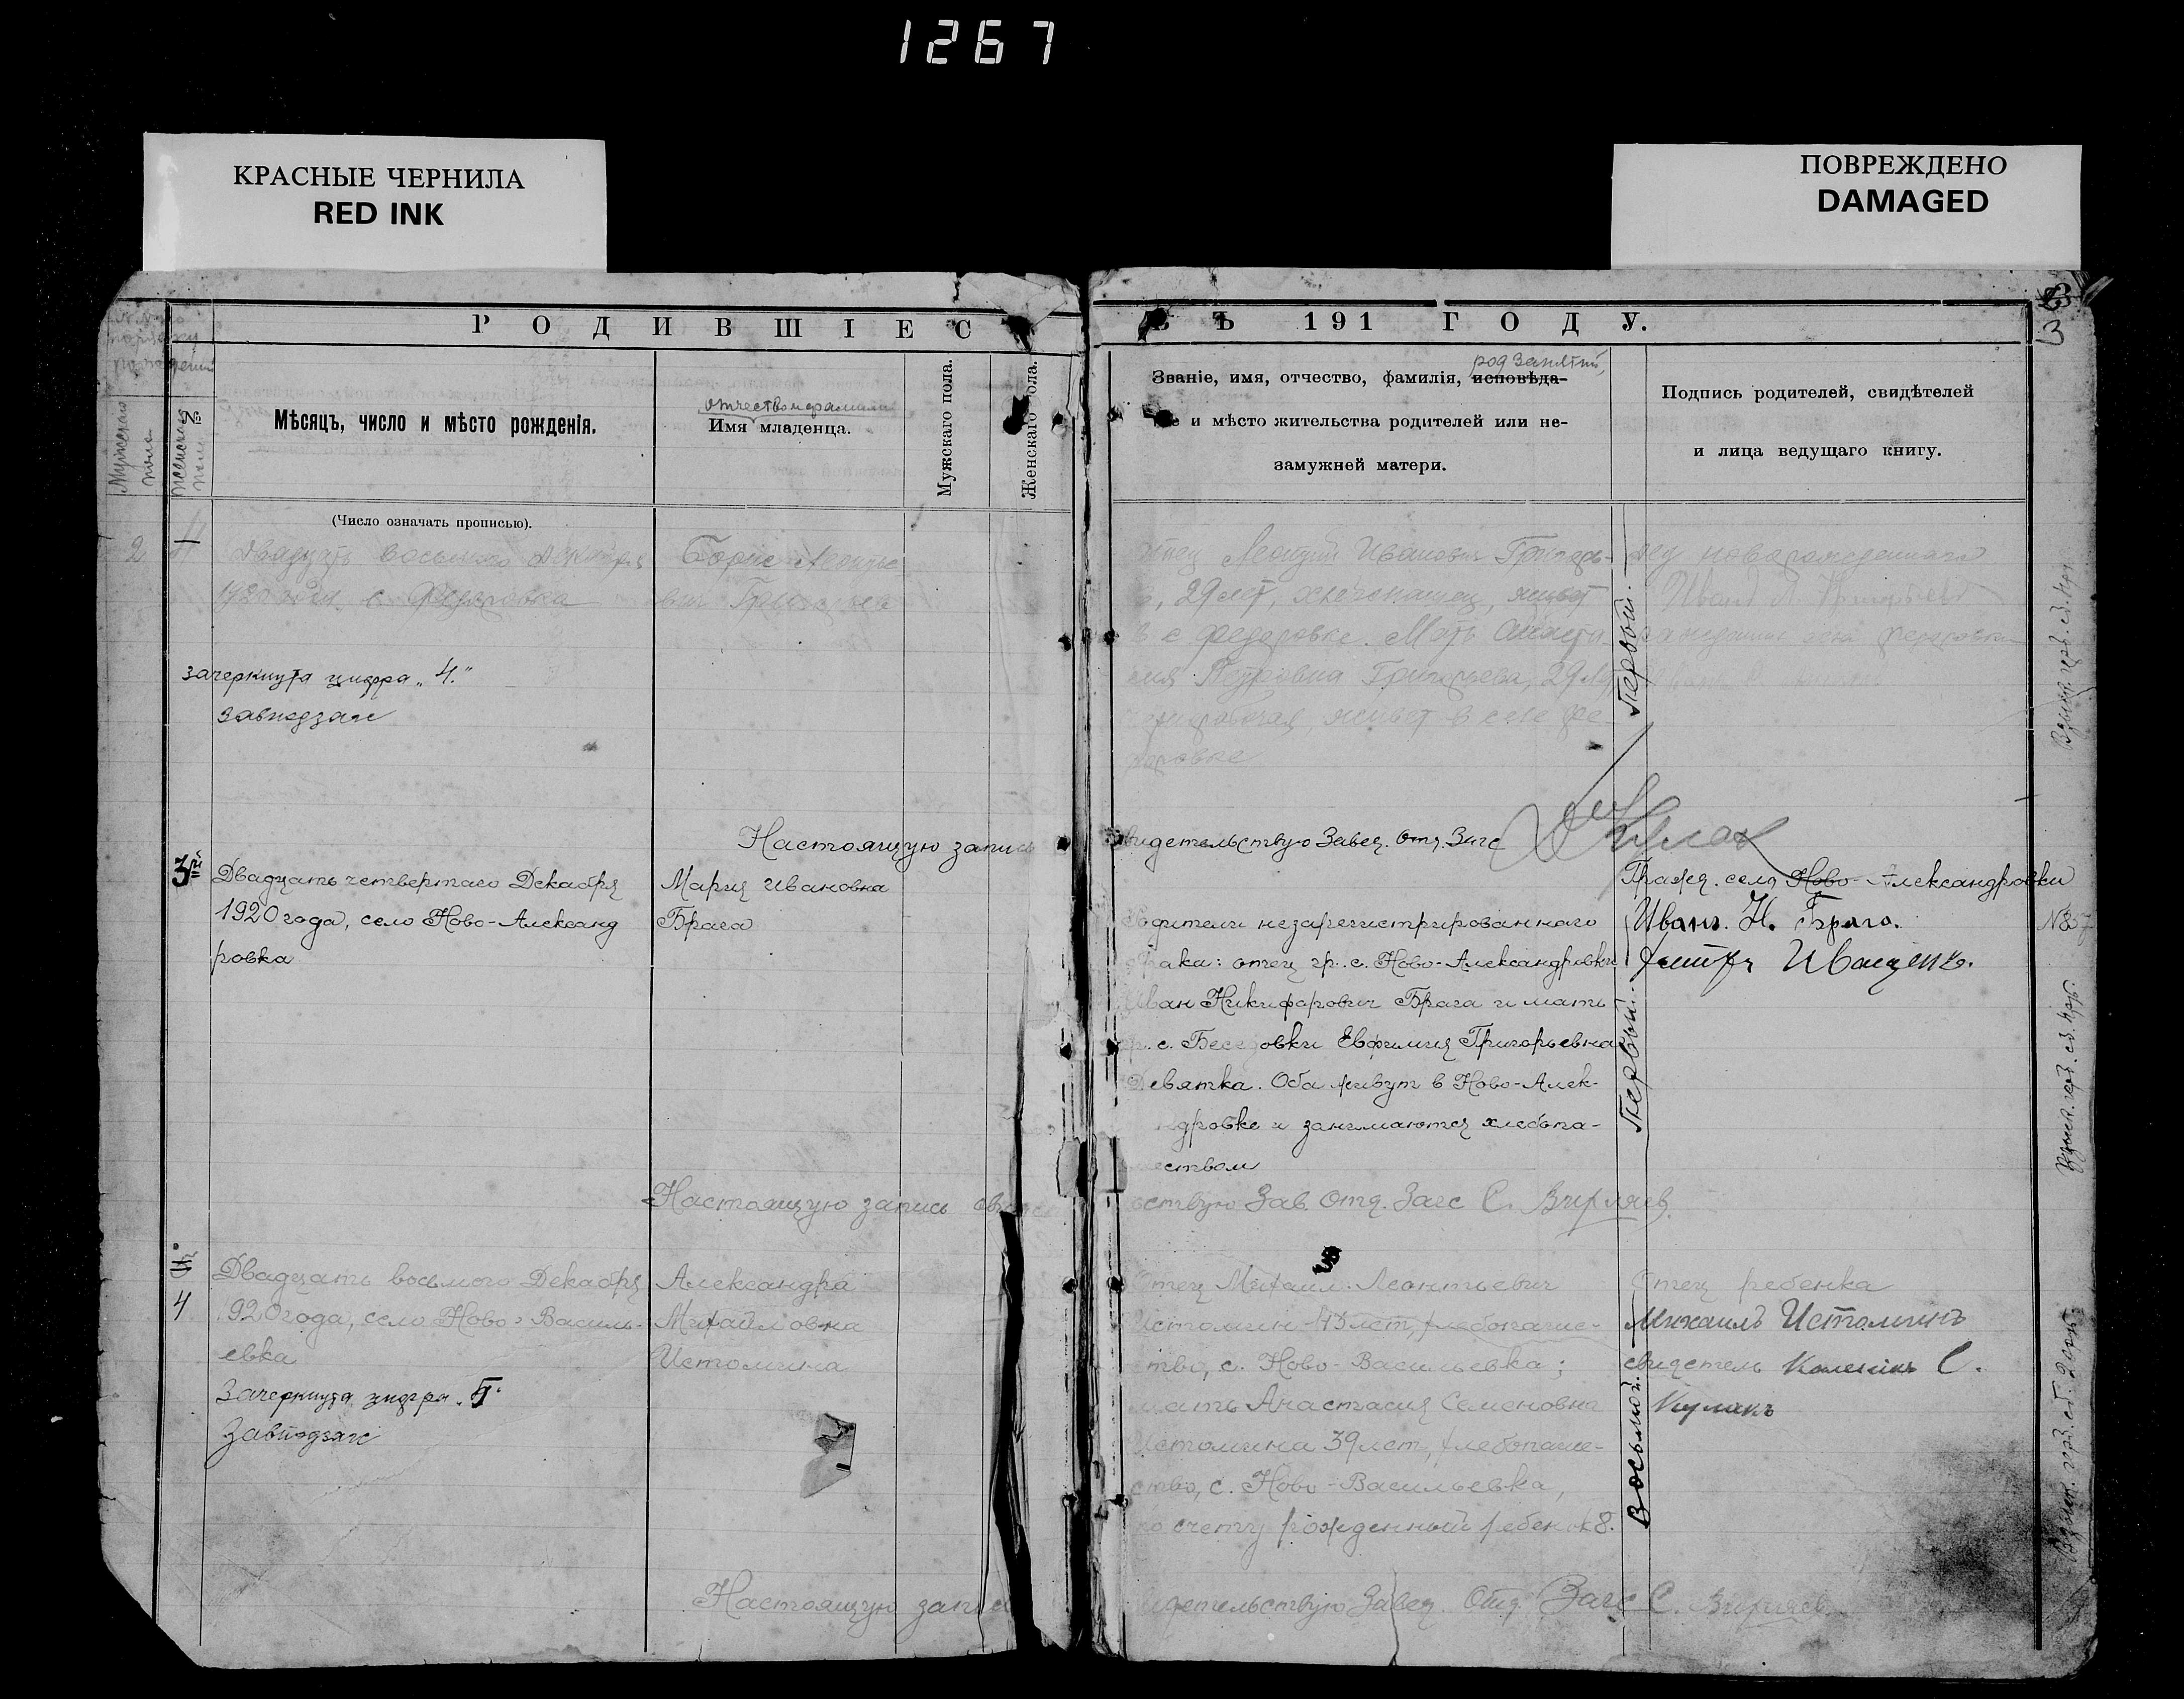 1267
КРАСНЫЕ ЧЕРНИЛА
RED INK
ПОВРЕЖДЕНО
DAMAGED
РОДИВШІЕС
ВЪ 191 ГОДУ.
3
Мужского пола
Женского пола
№
Мѣсяцъ, число и мѣсто рожденія.
отчество и фамилия
Имя младенца.
Мужскаго пола.
Женскаго пола.
род занятий,
Званіе, имя, отчество, фамилія, исповѣда-
ніе и мѣсто жительства родителей или не-
замужней матери.
Подпись родителей, свидѣтелей
и лица ведущаго книгу.
(Число означать прописью).
2
4
Двадцать восьмого Декабря
1920 года с. Федоровка
Борис Леонтье
вич Григорьев
зачеркнута цифра „4."
Отец Леонтий Иванович Григорь-
29 лет, хлебопашец, живет
в с. Федоровке. Мать Анаста
сия Петровна Григорьева, 29 л
живет в селе Фе-
доровке
Первый.
дед новорожденного
Иван Григорьев
Настоящую запись
свидетельствую Завед. Отд. Загс
3й
Двадцать четвертого Декабря
1920 года, село Ново-Александ
ровка
Мария Ивановна
Брага
Родители незарегистрированного
брака: отец гр. с. Ново-Александровки
Иван Никифорович Брага и мать
гр. с. Беседовки Евфимия Григорьевна
Девятка. Оба живут в Ново-Алек-
ндровке и занимаются хлебопа-
шеством
Первый.
Гражд. села Ново-Александровки
Иванъ. Н. Брага.
Иващенко.
№
Настоящую запись свидетель
ствую Зав. Отд. Загс С.
4
Двадцать восьмого Декабря
1920 года, село Ново-Василь-
евка
Зачеркнута цифра „5"
Александра
Михайловна
Истомина
Отец Михаил Леонтьевич
Истомин 43 лет, хлебопаше-
ство, с. Ново-Васильевка;
мать Анастасия Семеновна
Истомина 39 лет, хлебопаше-
ство, с. Ново-Васильевка,
по счету рожденный ребенок 8.
Восьмой.
Отец ребенка
Михаилъ Истоминъ
свидетель С.
Кулакъ
Настоящую запись
свидетельствую Завед. Отд. Загс С.